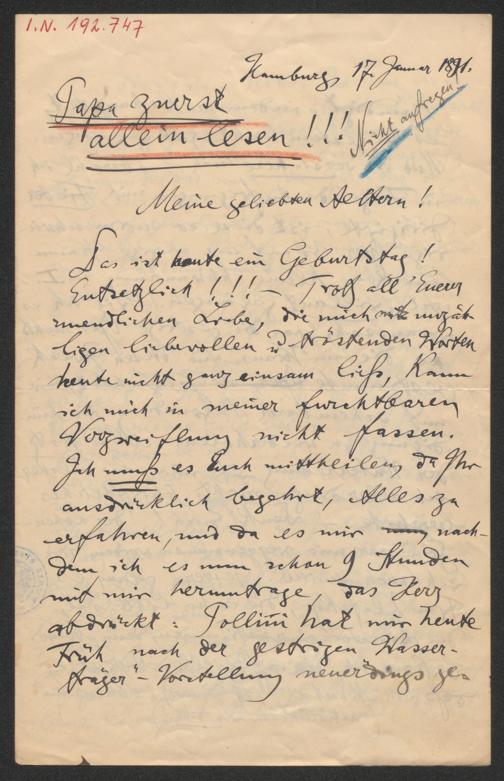 I.N. 192.747
Hamburg, 17. Januar 1891.
Papa zuerst
allein lesen!!!
Nicht aufregen!
Meine geliebten Aeltern!
Das ist heute ein Geburtstag!
Entsetzlich!!! — Trotz all' Euerer
unendlichen Liebe, die mich mit unzäh-
ligen liebevollen u tröstenden Worten
heute nicht ganz einsam ließ, kann
ich mich in meiner furchtbaren
Verzweiflung nicht fassen.
Ich muß es Euch mittheilen, da Ihr
ausdrücklich begehrt, Alles zu
erfahren, und da es mir nach-
dem ich es nun schon 9 Stunden
mit mir herumtrage, das Herz
abdrückt: Pollini hat mir heute
Früh nach der gestrigen Wasser-
träger"-Vorstellung neuerdings ge-